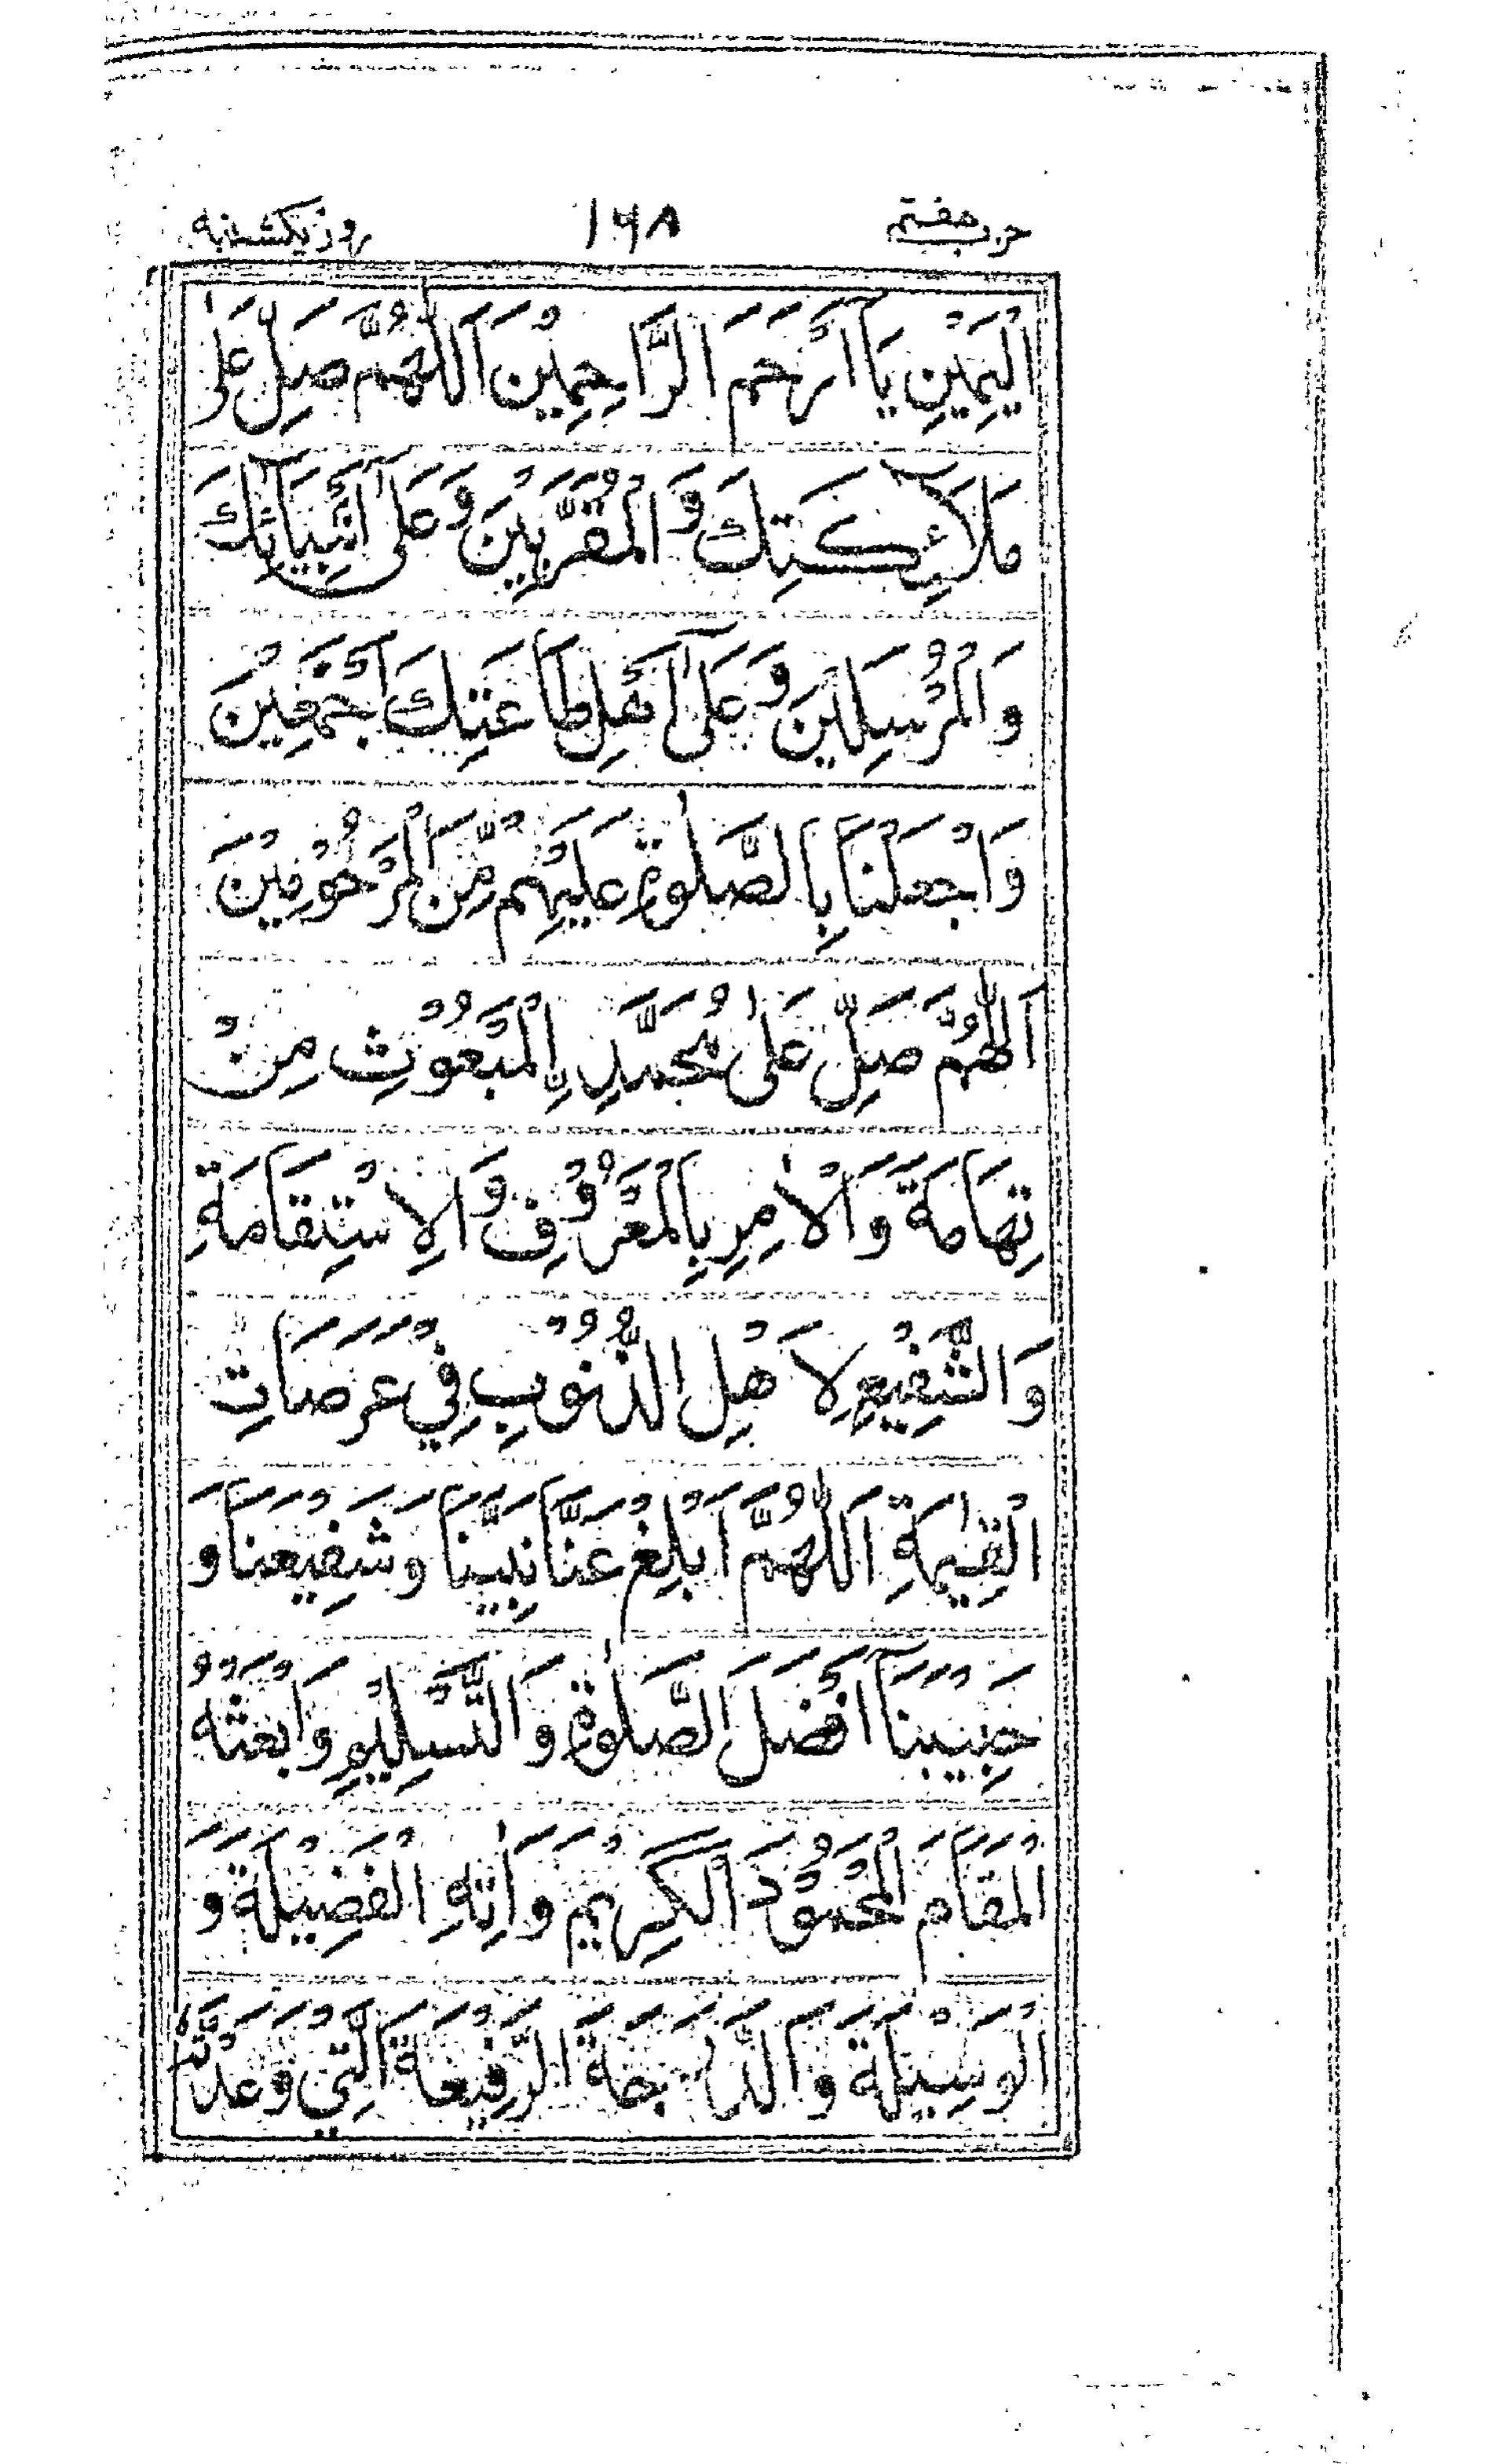 حزب هفتم ۱۶۸ روز یکشنبه
الْيَمِيْنِ يَآ اَرْحَمَ الرَّاحِمِيْنَ اَللّٰهُمَّ صَلِّ عَلٰى
مَلَآئِكَتِكَ وَالْمُقَرَّبِيْنَ وَعَلٰٓى اَنْبِيَآئِكَ
وَالْمُرْسَلِيْنَ وَعَلٰٓى اَهْلِ طَاعَتِكَ اَجْمَعِيْنَ
وَاجْعَلْنَا بِالصَّلٰوةِ عَلَيْهِمْ مِّنَ الْمَرْحُوْمِيْنَ
اَللّٰهُمَّ صَلِّ عَلٰى مُحَمَّدِ ࣙالْمَبْعُوْثِ مِنْ
تِهَامَةَ وَالْاٰمِرِ بِالْمَعْرُوْفِ وَالْاِسْتِقَامَةِ
وَالشَّفِيْعِ لِاَهْلِ الذُّنُوْبِ فِيْ عَرَصَاتِ
الْقِيٰمَةِ اَللّٰهُمَّ اَبْلِغْ عَنَّا نَبِيَّنَا وَشَفِيْعَنَا وَ
حَبِيْبَنَآ اَفْضَلَ الصَّلٰوةِ وَالتَّسْلِيْمِ وَابْعَثْهُ
الْمَقَامَ الْمَحْمُوْدَ الْكَرِيْمَ وَاٰتِهِ الْفَضِيْلَةَ وَ
الْوَسِيْلَةَ وَالدَّرَجَةَ الرَّفِيْعَةَ الَّتِيْ وَعَدْتَّهٗ